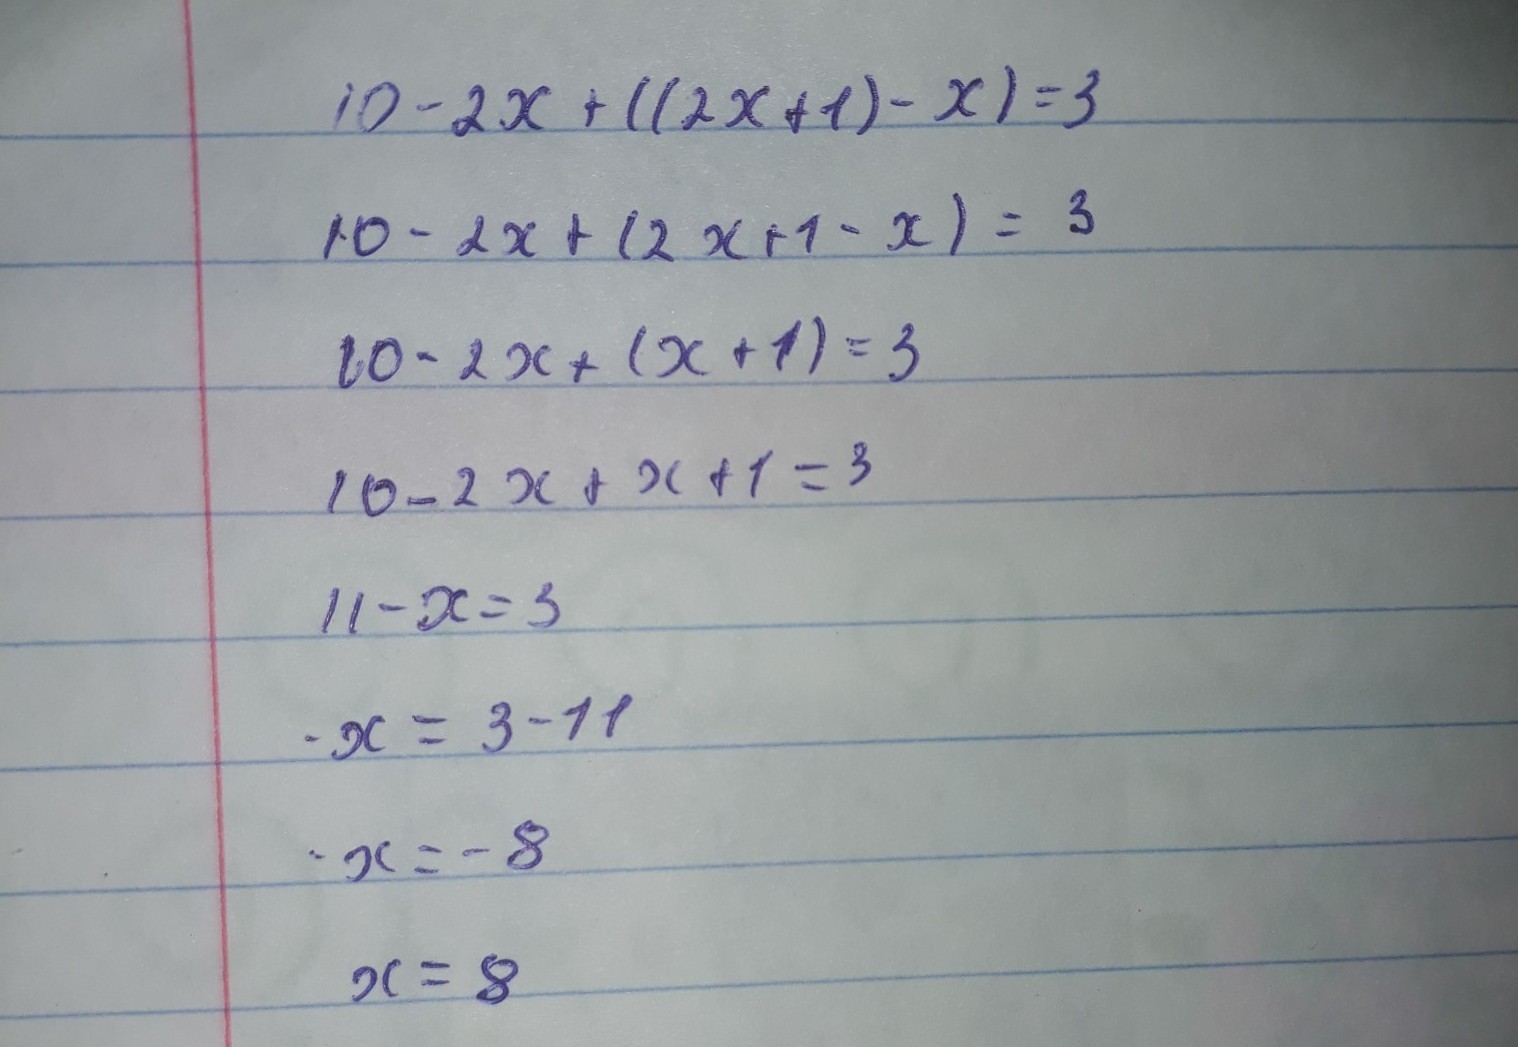 10-2x+((2x+1)-x)=3
10-2x+(2x+1-x)=3
10-2x+(x+1)=3
10-2x+x+1=3
11-x=3
-x=3-11
-x=-8
x=8